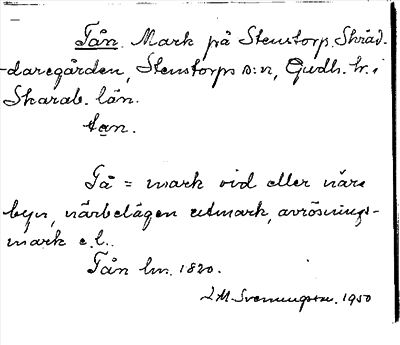 Tån. Mark på Stenstorp. Skräd-
daregården, Stenstorps s:n, Gudh. hr. i
Skarab. län.
tan.
Tå = mark vid eller nära
byn, närbelägen utmark, avrösnings-
mark e.l..
Tån lm. 1820.
1950